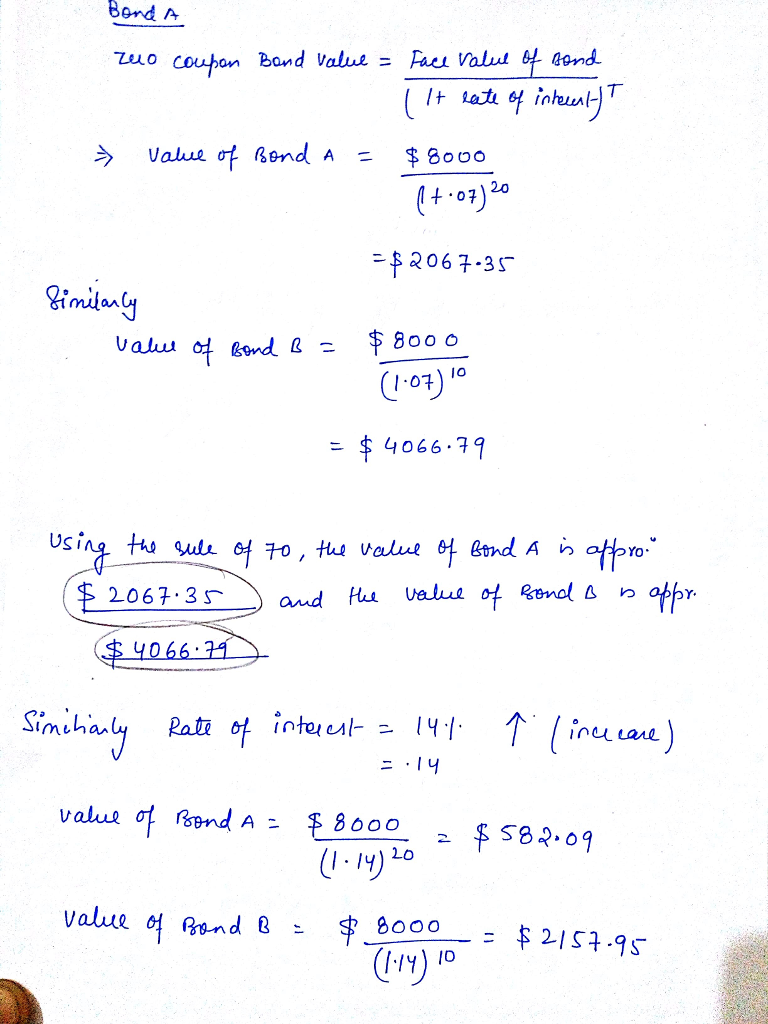 Bond A
Zero coupon Bond Value = Face Value of Bond
(1+ rate of interest)^T
⇒ Value of Bond A = $8000
(1+.07)^20
=$2067.35
Similarly
Value of Bond B = $8000
(1.07)^10
= $4066.79
Using the rule of 70, the value of Bond A is appro.
$2067.35 and the value of Bond B is appr.
$4066.79
Similiarly Rate of interest = 14% ↑ (increase)
= .14
value of Bond A = $8000 = $582.09
(1.14)^20
Value of Bond B = $8000 = $2157.95
(1.14)^10